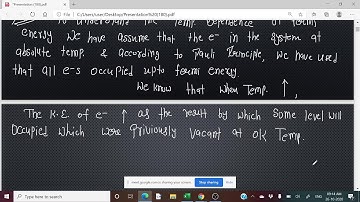 "Presentation%20(180).pdf
C:/Users/user/Desktop/Presentation%20(180).pdf
to understand the Temp. Dependence of fermi
energy We have assume that the e⁻ in the system at
absolute temp. & according to Pauli Principle, we have used
that all e-s occupied upto fermi energy.
We know that when Temp. ↑,
The K.E. of e⁻ ↑ as the result by which some level will
Occupied which were Priviously vacant at 0k Temp.
meet.google.com is sharing your screen. Stop sharing Hide
Type here to search
09:14 AM